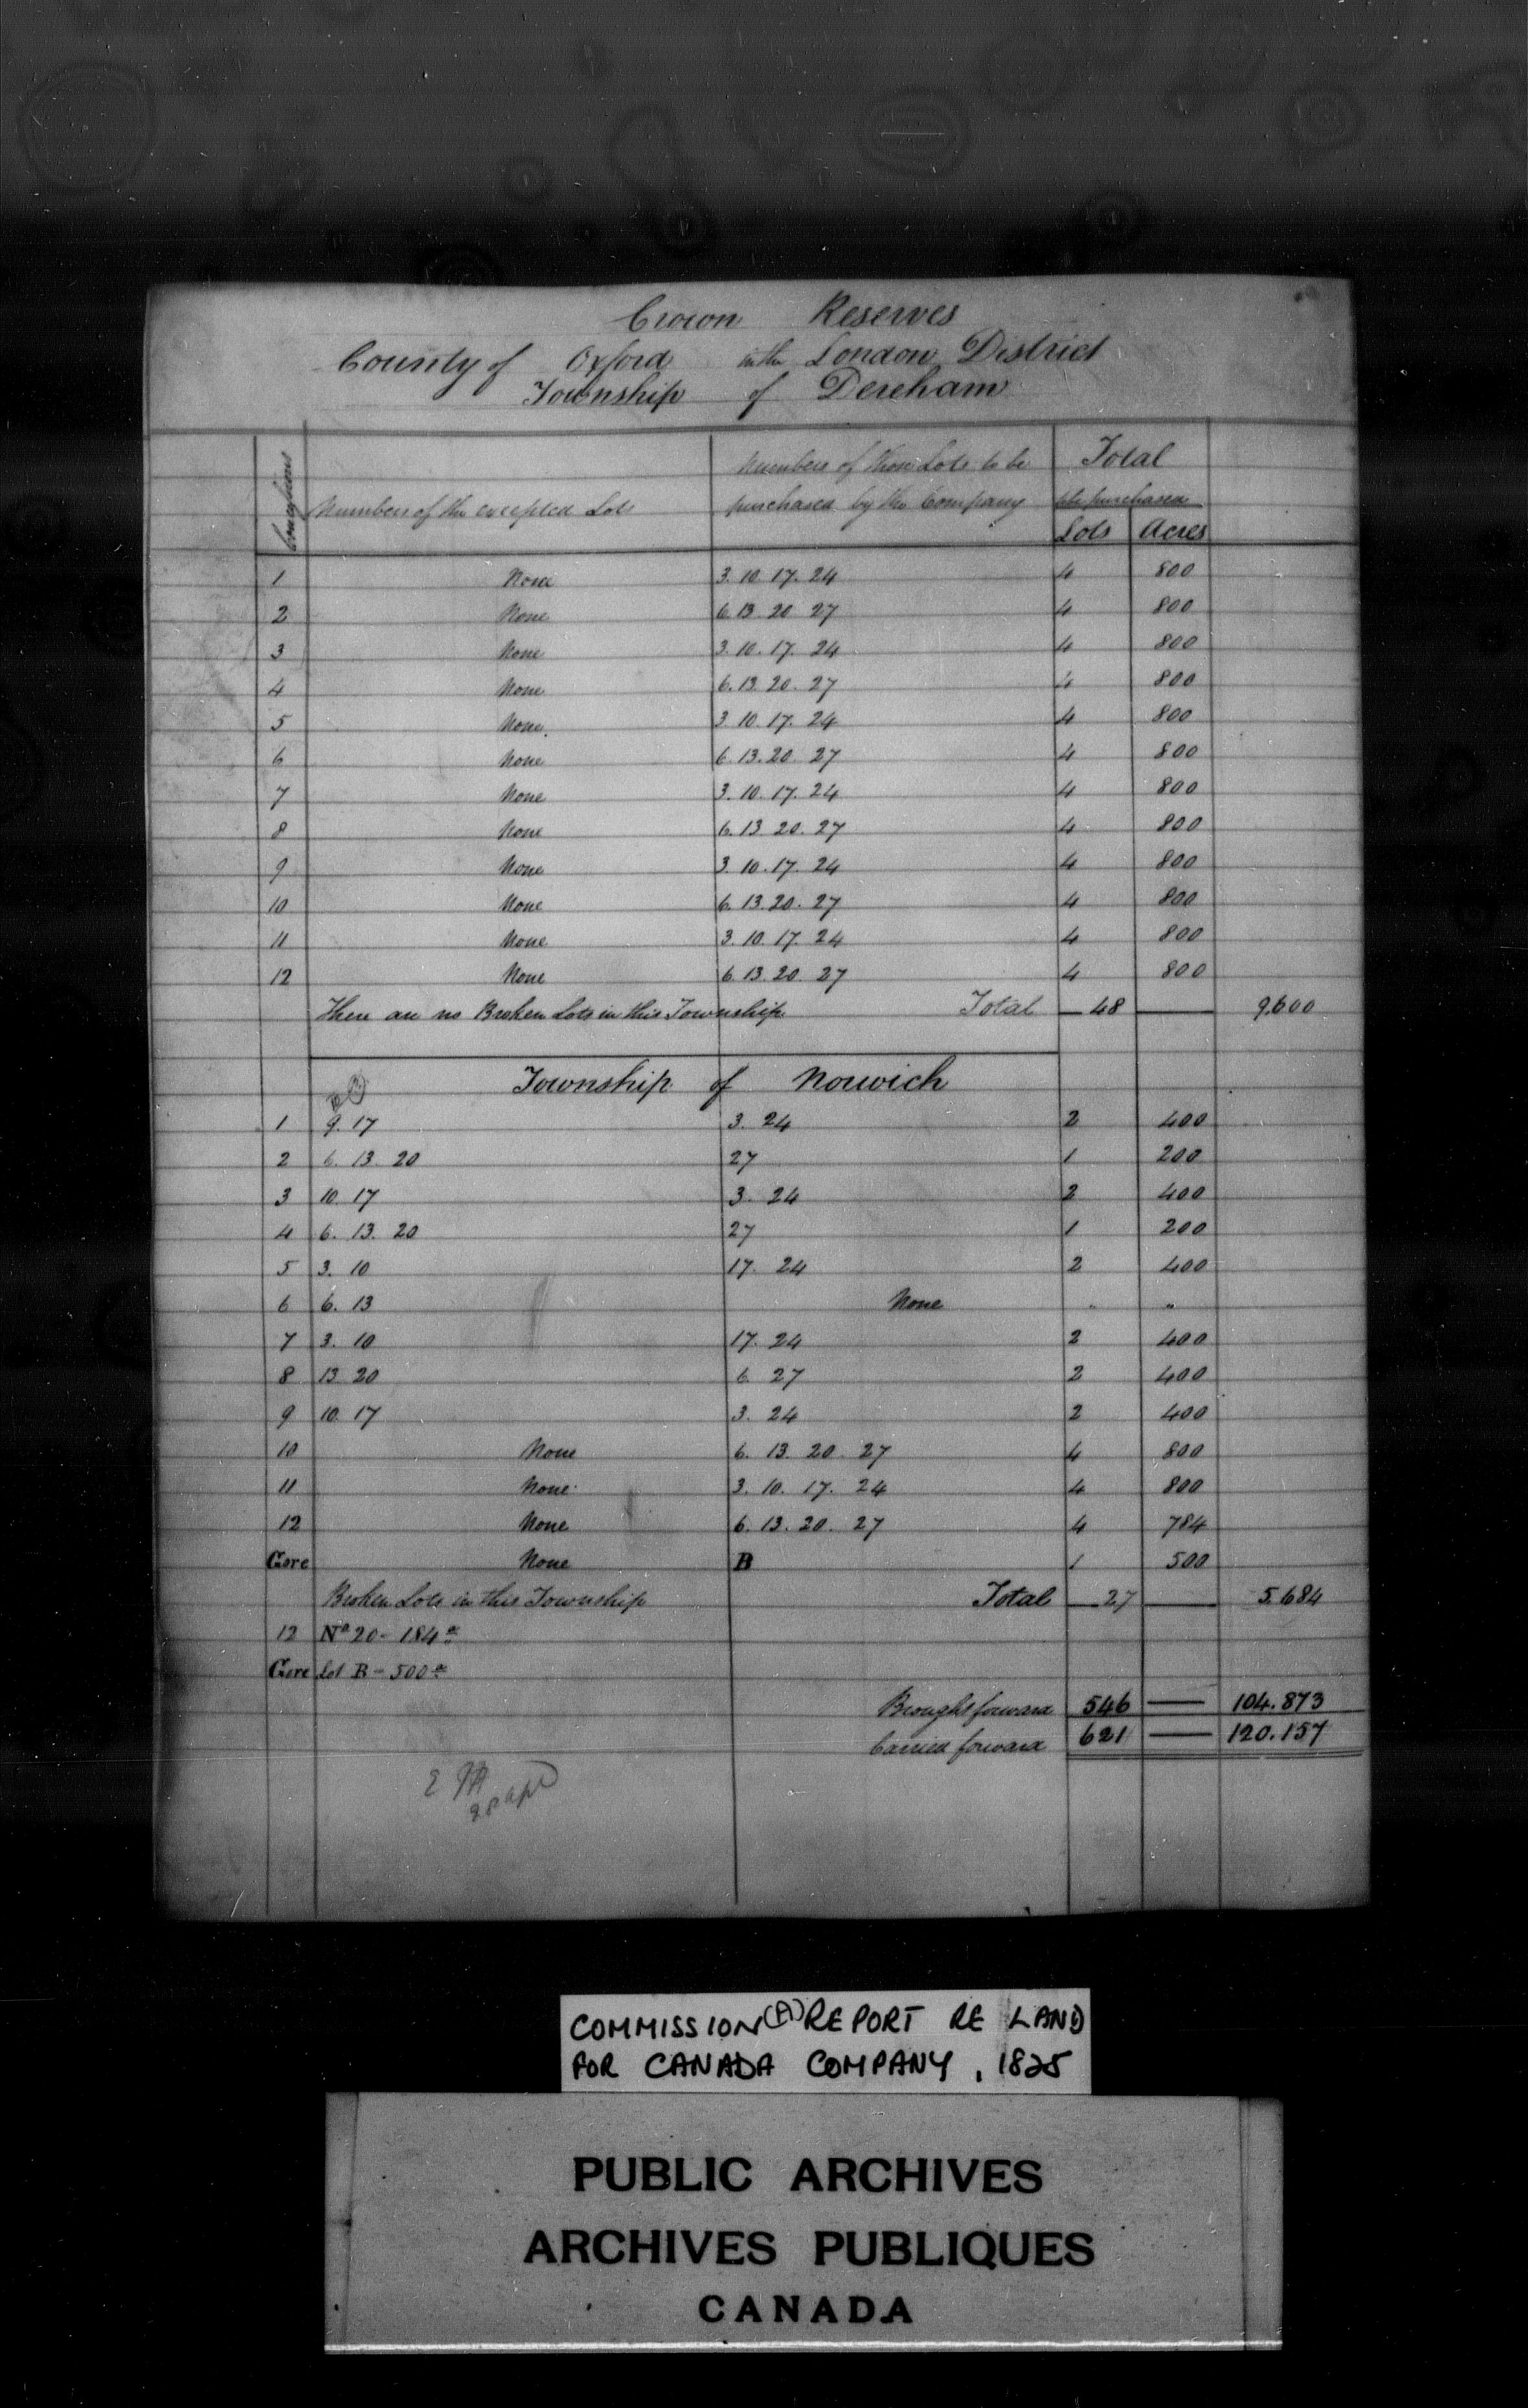 Crown Reserves
County of Oxford in the London District
Township of Dereham
Concessions
Numbers of the excepted Lots
Numbers of those Lots to be purchased by the Company
Total
purchased
Lots Acres
1 None 3. 10. 17. 24 4 800
2 None 6. 13. 20 27 4 800
3 None 3. 10. 17. 24 4 800
4 None 6. 13. 20. 27 4 800
5 None 3 10. 17. 24 4 800
6 None 6. 13. 20. 27 4 800
7 None 3. 10. 17. 24 4 800
8 None 6. 13 20. 27 4 800
9 None 3. 10. 17. 24 4 800
10 None 6. 13. 20. 27 4 800
11 None 3. 10. 17. 24 4 800
12 None 6. 13. 20. 27 4 800
There are no Broken Lots in this Township Total 48 9,600
Township of Norwich
1 9. 17 3. 24 2 400
2 6. 13. 20 27 1 200
3 10. 17 3. 24 2 400
4 6. 13. 20 27 1 200
5 3. 10 17. 24 2 400
6 6. 13 None " "
7 3. 10 17. 24 2 400
8 13 20 6 27 2 400
9 10. 17 3. 24 2 400
10 None 6. 13. 20. 27 4 800
11 None 3. 10. 17. 24 4 800
12 None 6. 13. 20. 27 4 784
Gore None B 1 500
Broken Lots in this Township Total 27 5.684
12 No 20 - 184 a
Gore Lot B - 500 a
Brought forward 546 104.873
Carried forward 621 120.157
COMMISSION (A) REPORT RE LAND
FOR CANADA COMPANY, 1825
PUBLIC ARCHIVES
ARCHIVES PUBLIQUES
CANADA